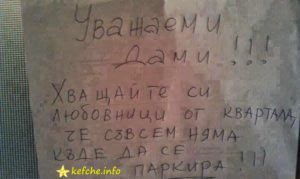 Уважаеми
Дами!!!
Хващайте си
любовници от квартала,
че съвсем няма
къде да се
паркира!!!
kefche.info